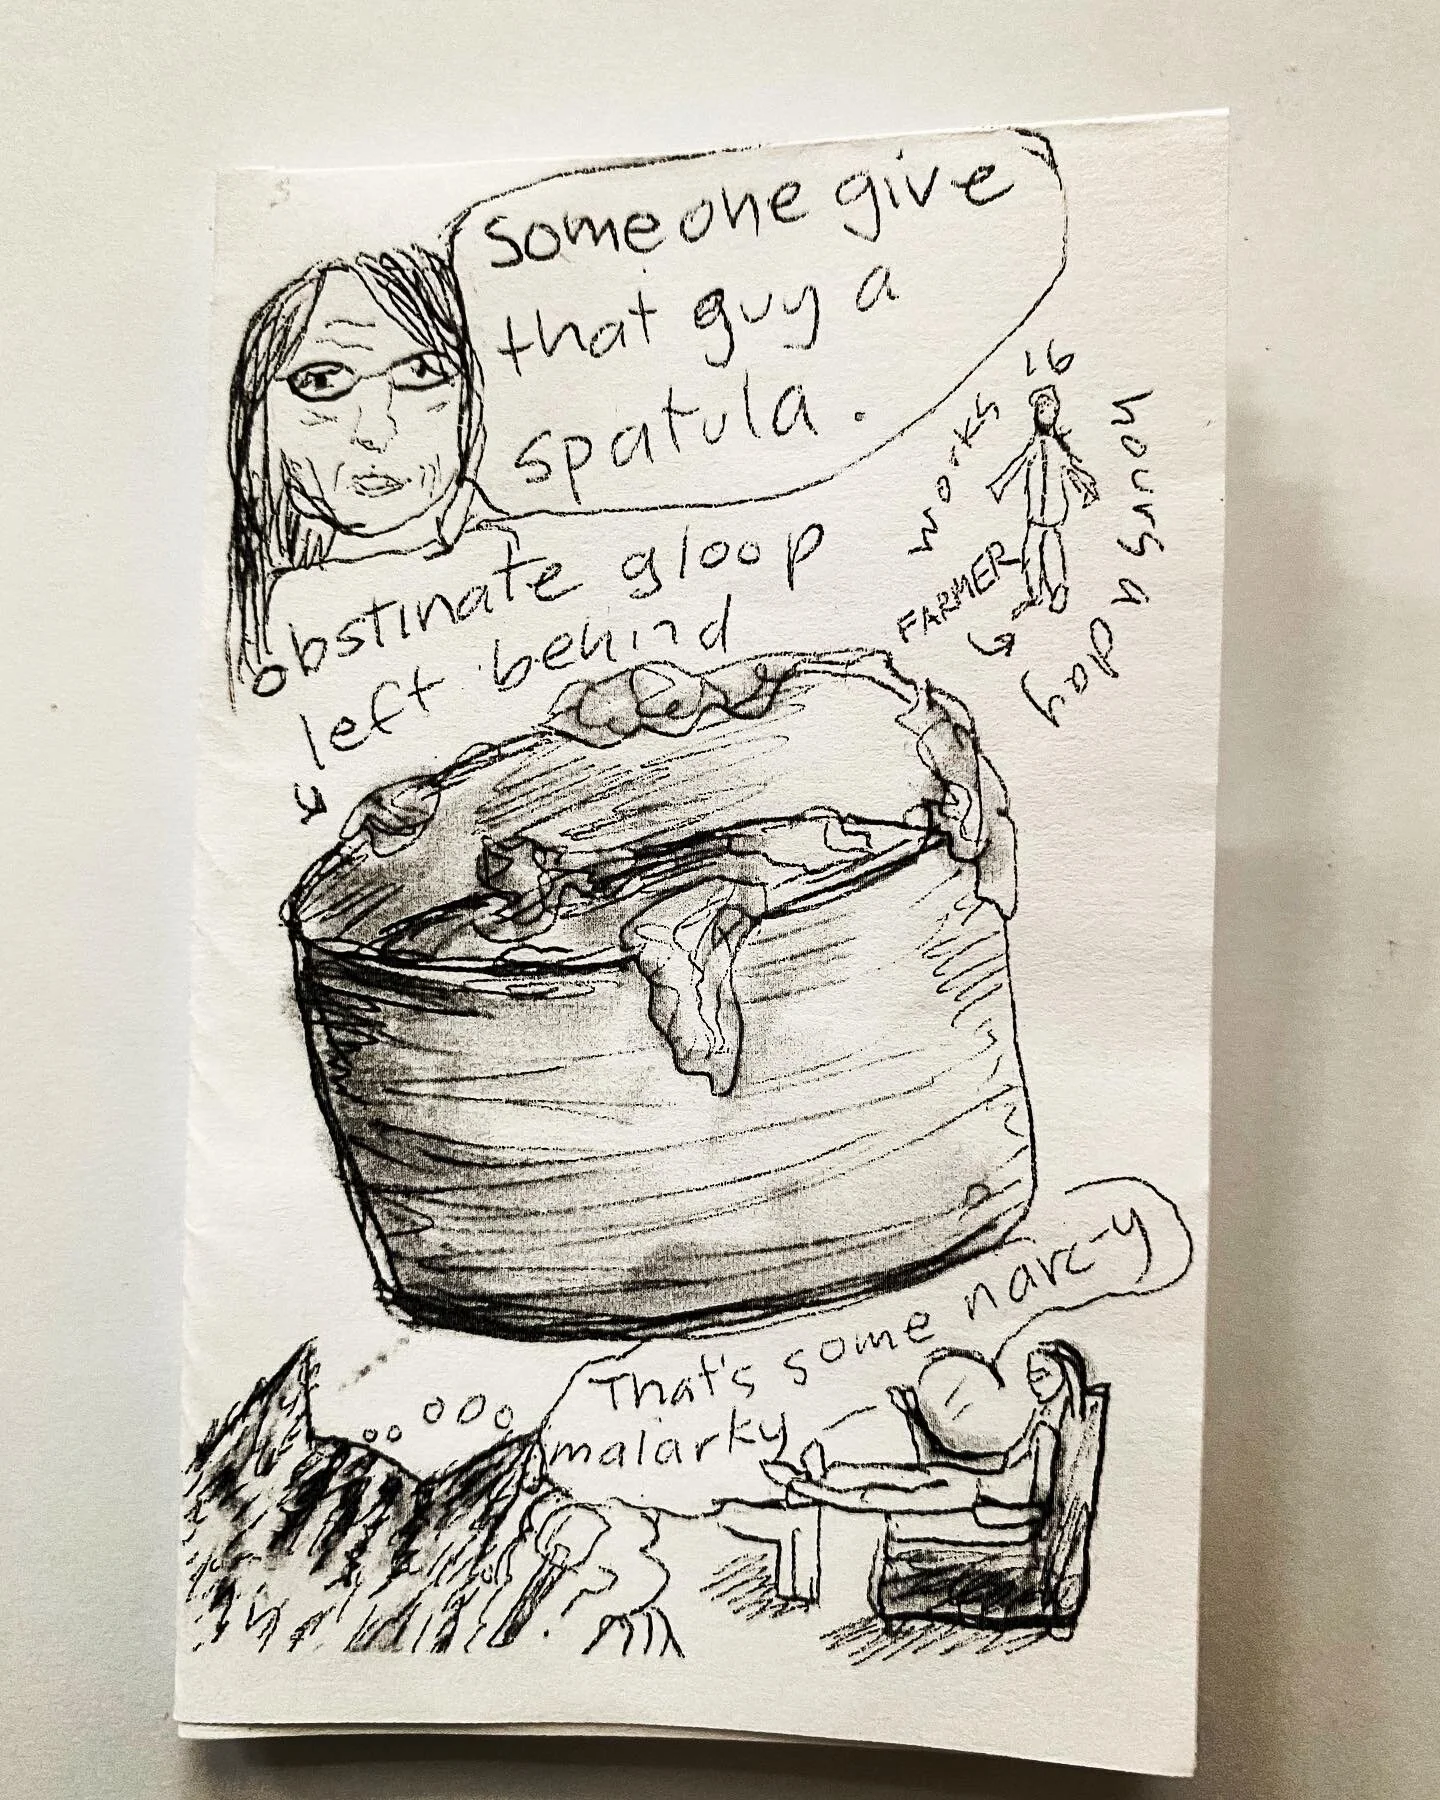 Someone give
that guy a
spatula.
16
works
hours a day
FARMER
obstinate gloop
left behind
That's some narc-y
malarky